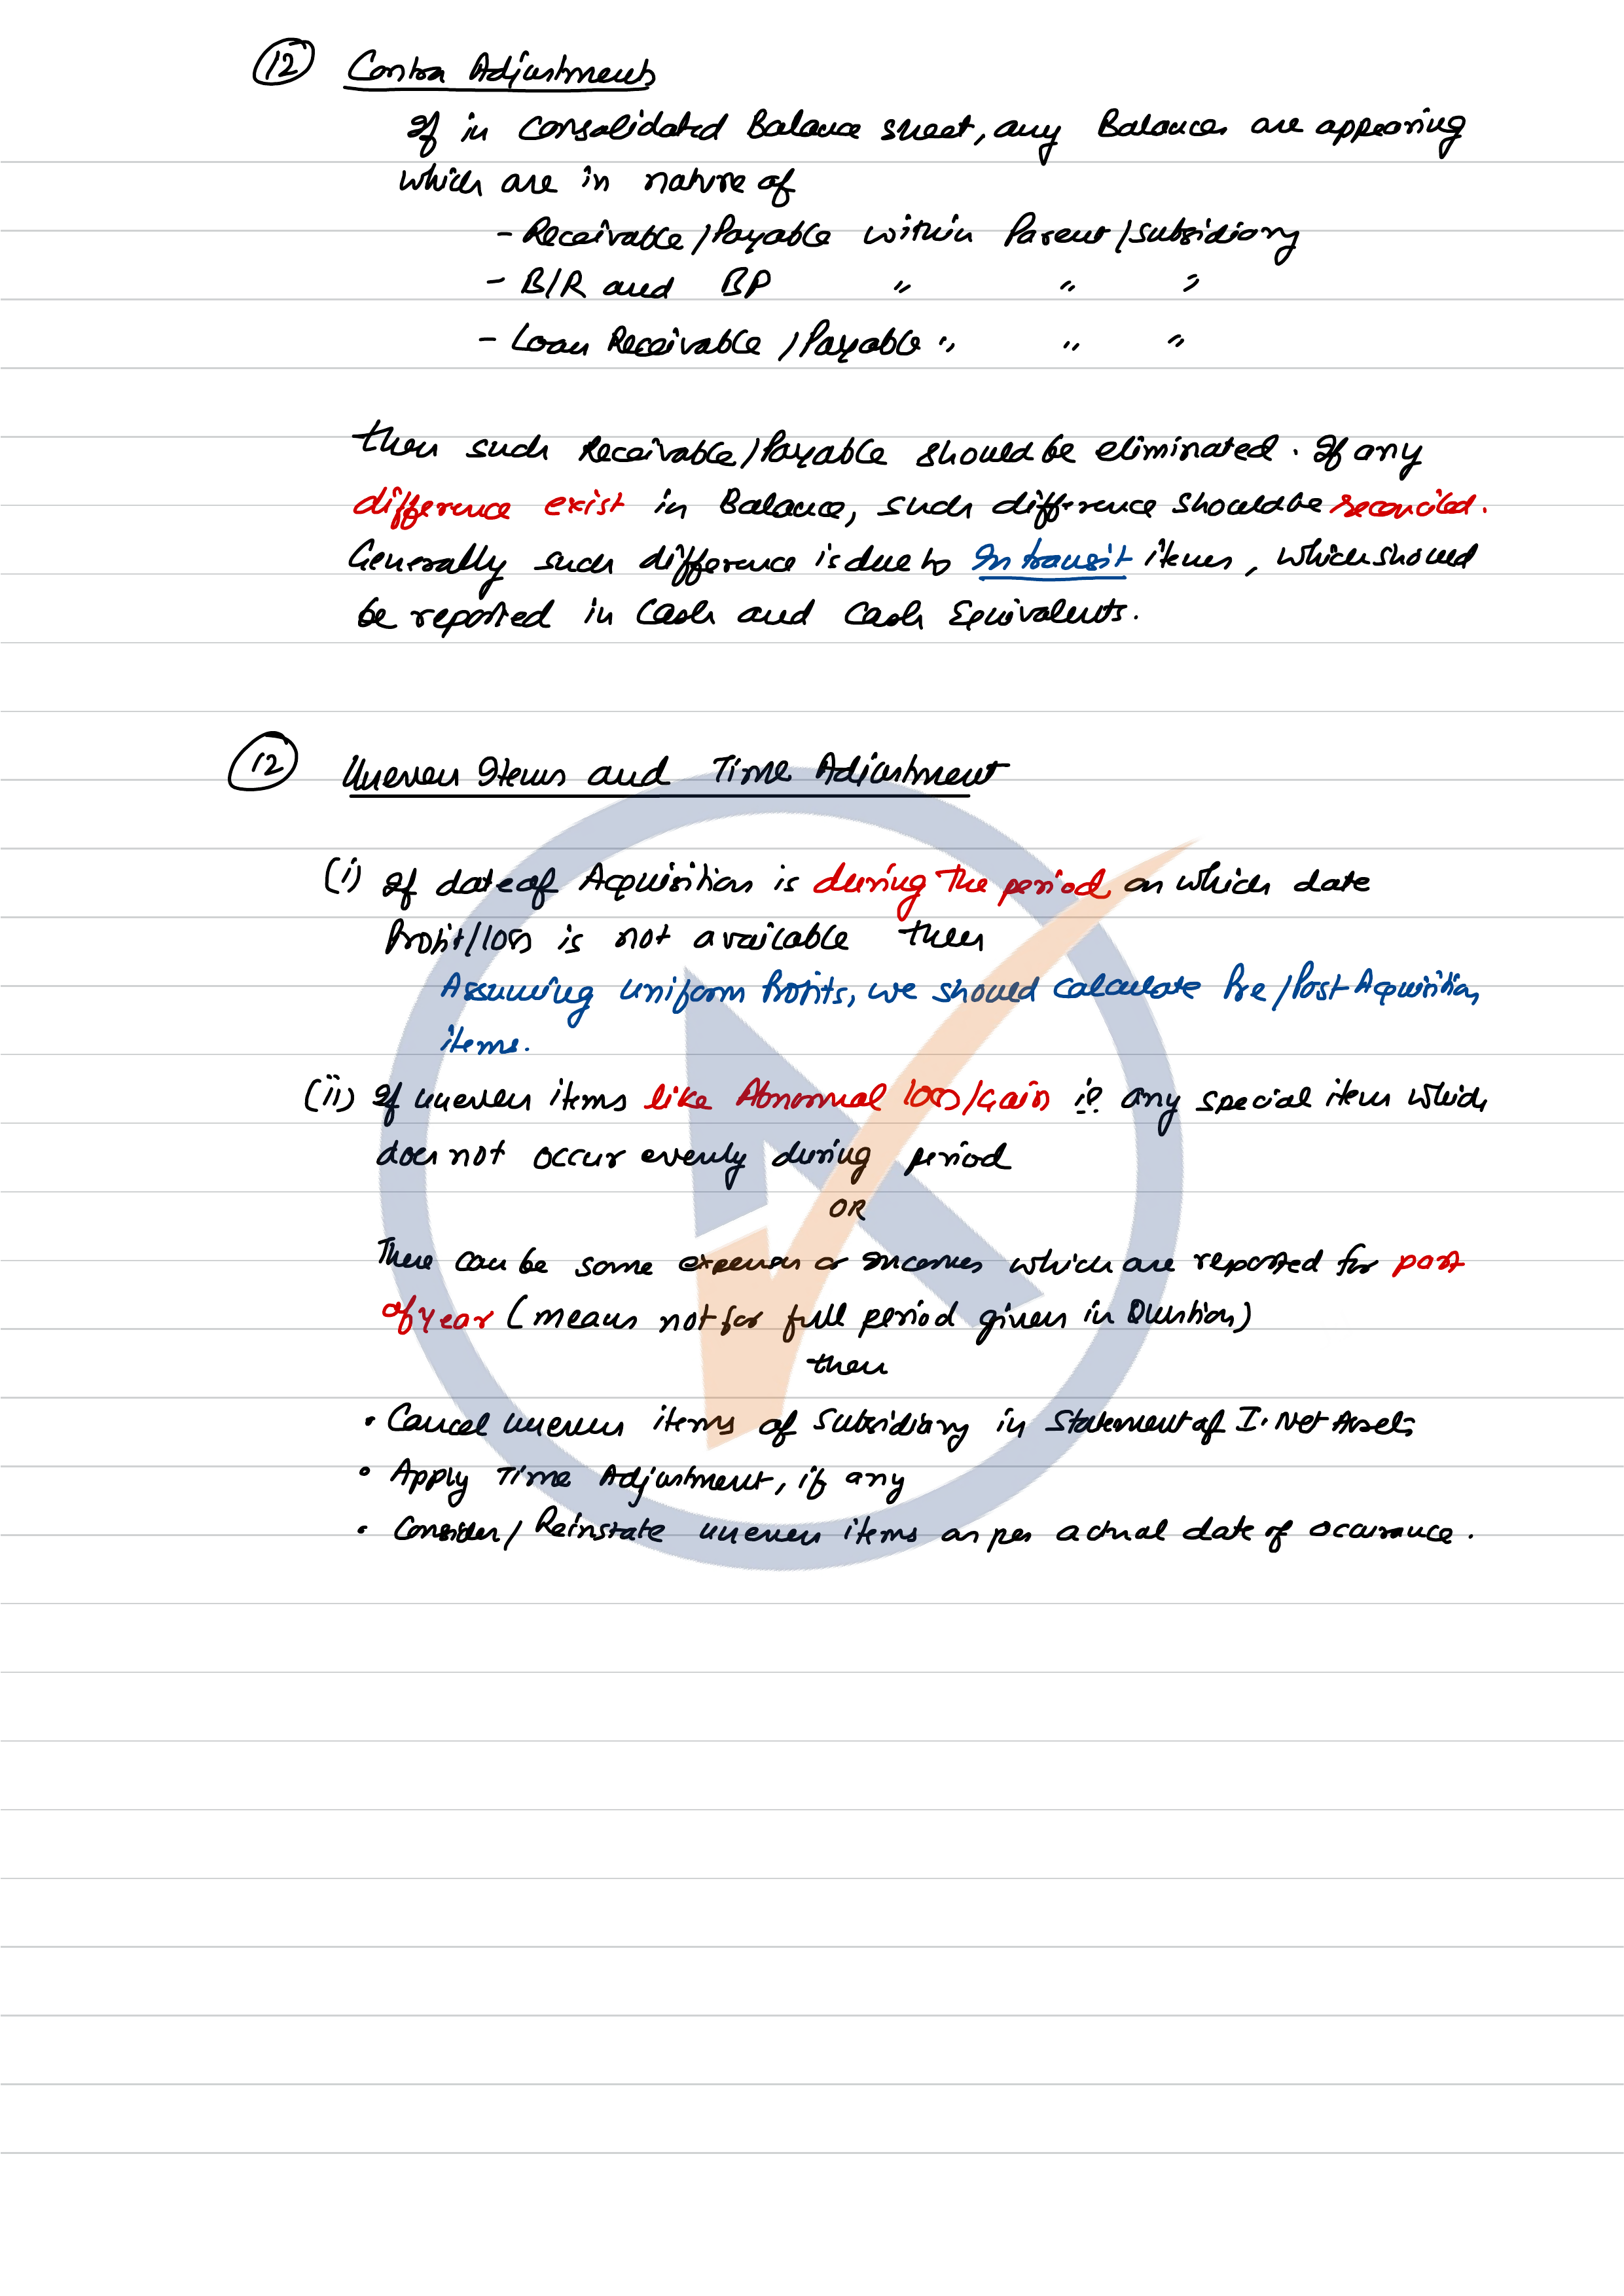 12 Contra Adjustments
If in consolidated Balance sheet, any Balances are appearing
which are in nature of
- Receivable/Payable within Parent/subsidiary
- B/R and BP " " "
- Loan Receivable/Payable " " "
then such Receivable/Payable should be eliminated. If any
difference exist in Balance, such difference should be reconciled.
Generally such difference is due to In transit items, which should
be reported in Cash and Cash Equivalents.
12 Uneven Items and Time Adjustment
(i) If date of Acquisition is during the period on which date
Profit/loss is not available then
Assuming uniform Profits, we should calculate Pre/Post Acquisition
items.
(ii) If uneven items like Abnormal loss/Gain i.e. any special item which
does not occur evenly during period
OR
There can be some expenses or incomes which are reported for part
of year (means not for full period given in Question)
then
• Cancel uneven items of Subsidiary in Statement of I. Net Assets
• Apply Time Adjustment, if any
• Consider/Reinstate uneven items as per actual date of occurance.